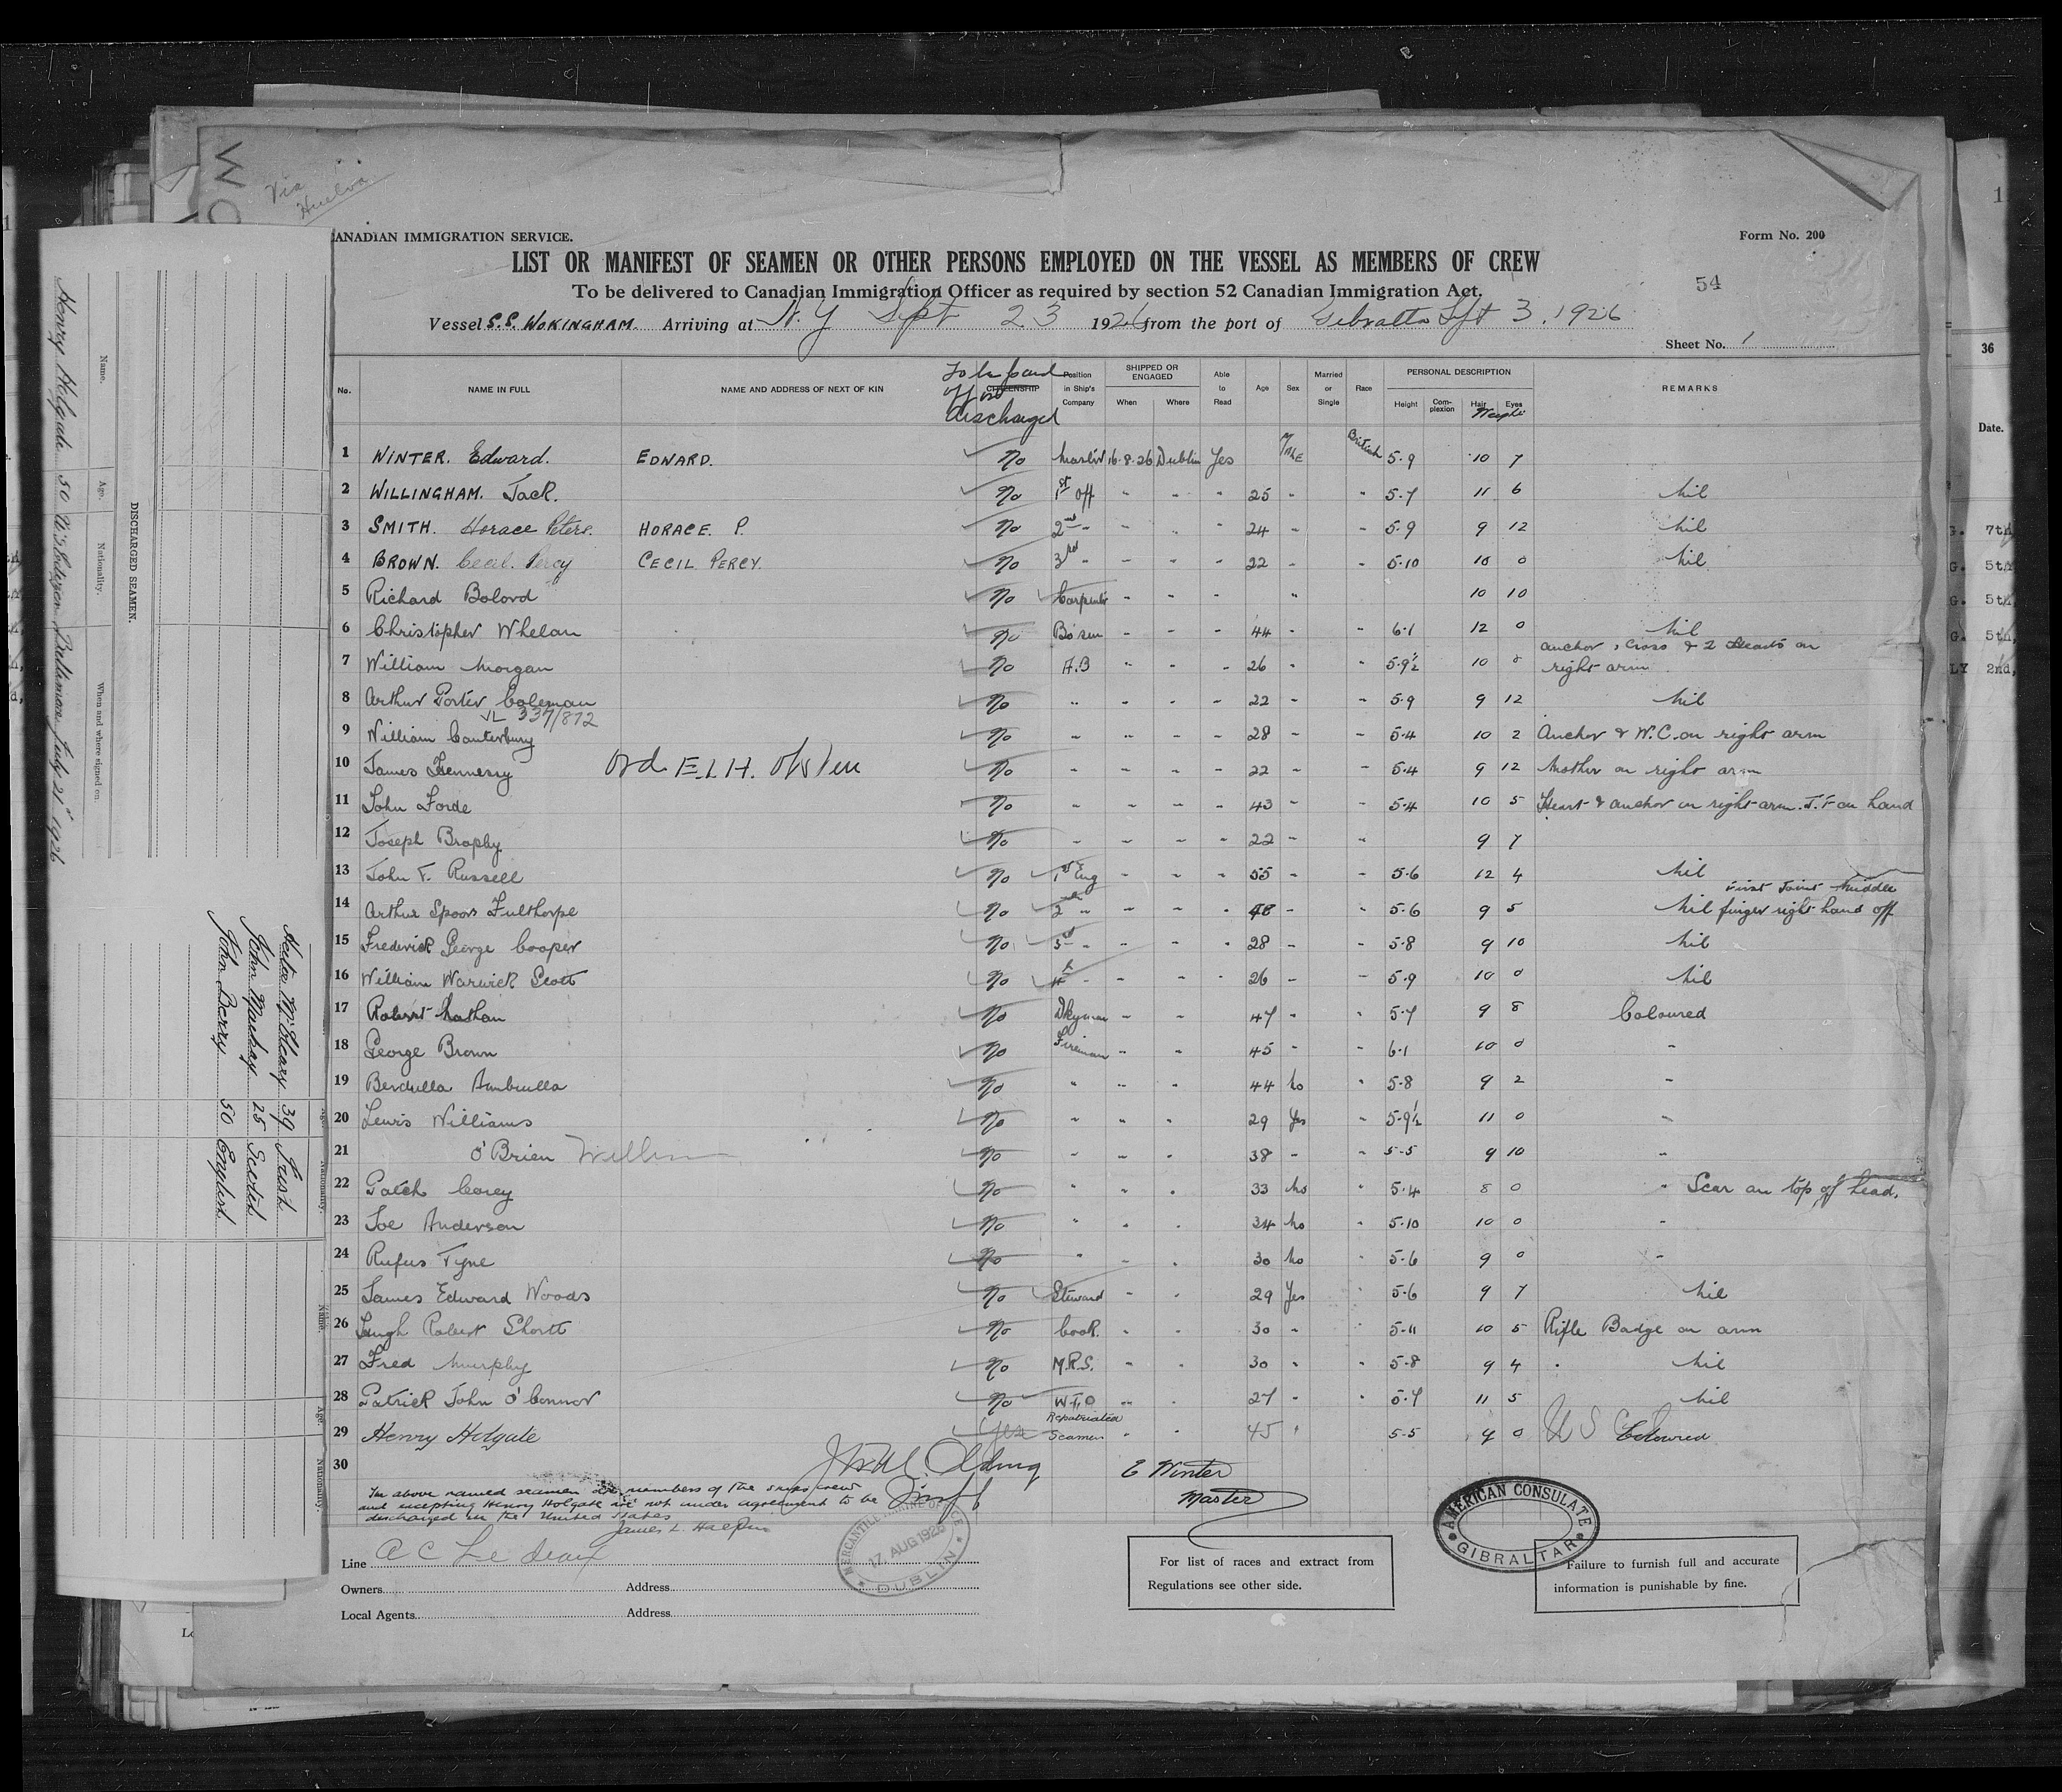 Via
Huelva
CANADIAN IMMIGRATION SERVICE.
Form No. 200
LIST OR MANIFEST OF SEAMEN OR OTHER PERSONS EMPLOYED ON THE VESSEL AS MEMBERS OF CREW
To be delivered to Canadian Immigration Officer as required by section 52 Canadian Immigration Act.
54
Vessel S.S. WOKINGHAM. Arriving at N.Y Sept 23 1926 from the port of Gibralta Sept 3. 1926
Sheet No. 1
No. NAME IN FULL NAME AND ADDRESS OF NEXT OF KIN CITIZENSHIP To be paid off or discharged Position in Ship's Company SHIPPED OR ENGAGED When Where Able to Read Age Sex Married or Single Race PERSONAL DESCRIPTION Height Complexion Hair Eyes Weight REMARKS
1 WINTER. Edward. EDWARD. No Master 16-8-26 Dublin Yes Male British 5-9 10 7
2 WILLINGHAM. Jack. No 1st off " " " 25 " " 5-7 11 6 Nil
3 SMITH. Horace Peters. HORACE. P. No 2nd " " " 24 " " 5-9 9 12 Nil
4 BROWN. Cecil. Percy CECIL PERCY. No 3rd " " " " 22 " " 5-10 10 0 Nil
5 Richard Bolord No Carpenter " " " " 10 10
6 Christopher Whelan No Bo'sun " " " 44 " " 6-1 12 0 Nil
7 William Morgan No A.B " " " 26 " " 5-9½ 10 0 anchor, cross & 2 Hearts on right arm
8 Arthur Porter Coleman No " " " " 22 " " 5-9 9 12 Nil
337/872
9 William Canterbury No " " " " 28 " " 5-4 10 2 Anchor & W.C. on right arm
10 James Hennessy No " " " " 22 " " 5-4 9 12 Mother on right arm
11 John Forde No " " " " 43 " " 5-4 10 5 Heart & anchor on right arm. J.F on hand
12 Joseph Brophy No " " " " 22 " " 9 7
13 John F. Russell No 1st Eng " " " 55 " " 5-6 12 4 Nil
14 Arthur Spoors Fulthorpe No 2nd " " " " 48 " " 5-6 9 5 Nil First Joint Middle finger right hand off
15 Frederick George Cooper No 3rd " " " " 28 " " 5-8 9 10 Nil
16 William Warwick Scott No 4th " " " " 26 " " 5-9 10 0 Nil
17 Robert Nathan No Dkyman " " 47 " " 5-7 9 8 Coloured
18 George Brown No Fireman " " 45 " " 6-1 10 0 "
19 No " " " 44 No " 5-8 9 2 "
20 Lewis Williams No " " " 29 Yes " 5-9½ 11 0 "
21 O'Brien William No " " " 38 " " 5-5 9 10 "
22 Corey No " " " 33 No " 5-4 8 0 " Scar on top of head.
23 Joe Anderson No " " " 34 No " 5-10 10 0 "
24 Rufus Tyne No " " " 30 No " 5-6 9 0 "
25 James Edward Woods No Steward " " 29 Yes " 5-6 9 7 Nil
26 Hugh Robert Shortt No Cook. " " 30 " " 5-11 10 5 Rifle Badge on arm
27 Fred Murphy No M.R.S. " " 30 " " 5-8 9 4 " Nil
28 Patrick John O'Connor No W.T.O " " 27 " " 5-7 11 5 Nil
29 Henry Holgate Yes Repatriated Seaman " " 45 " 5-5 9 0 U S C Coloured
30
E Winter
Master
The above named seamen are members of the ships crew
and excepting Henry Holgate are not under agreement to be
discharged in the United States
James L. Halpin
MERCANTILE MARINE OFFICE
17 AUG 1926
DUBLIN
AMERICAN CONSULATE
GIBRALTAR
Line
Owners Address
Local Agents Address
For list of races and extract from
Regulations see other side.
Failure to furnish full and accurate
information is punishable by fine.
DISCHARGED SEAMEN.
Name. Age. Nationality. When and where signed on.
Henry Holgate 50 Baltimore July 21st 1926
Name. Age. Nationality.
39 Irish
John Mackay 25 Scotish
John Berry 50 English
36
Date.
G. 7th
G. 5th
G. 5th,
G. 5th,
LY 2nd,